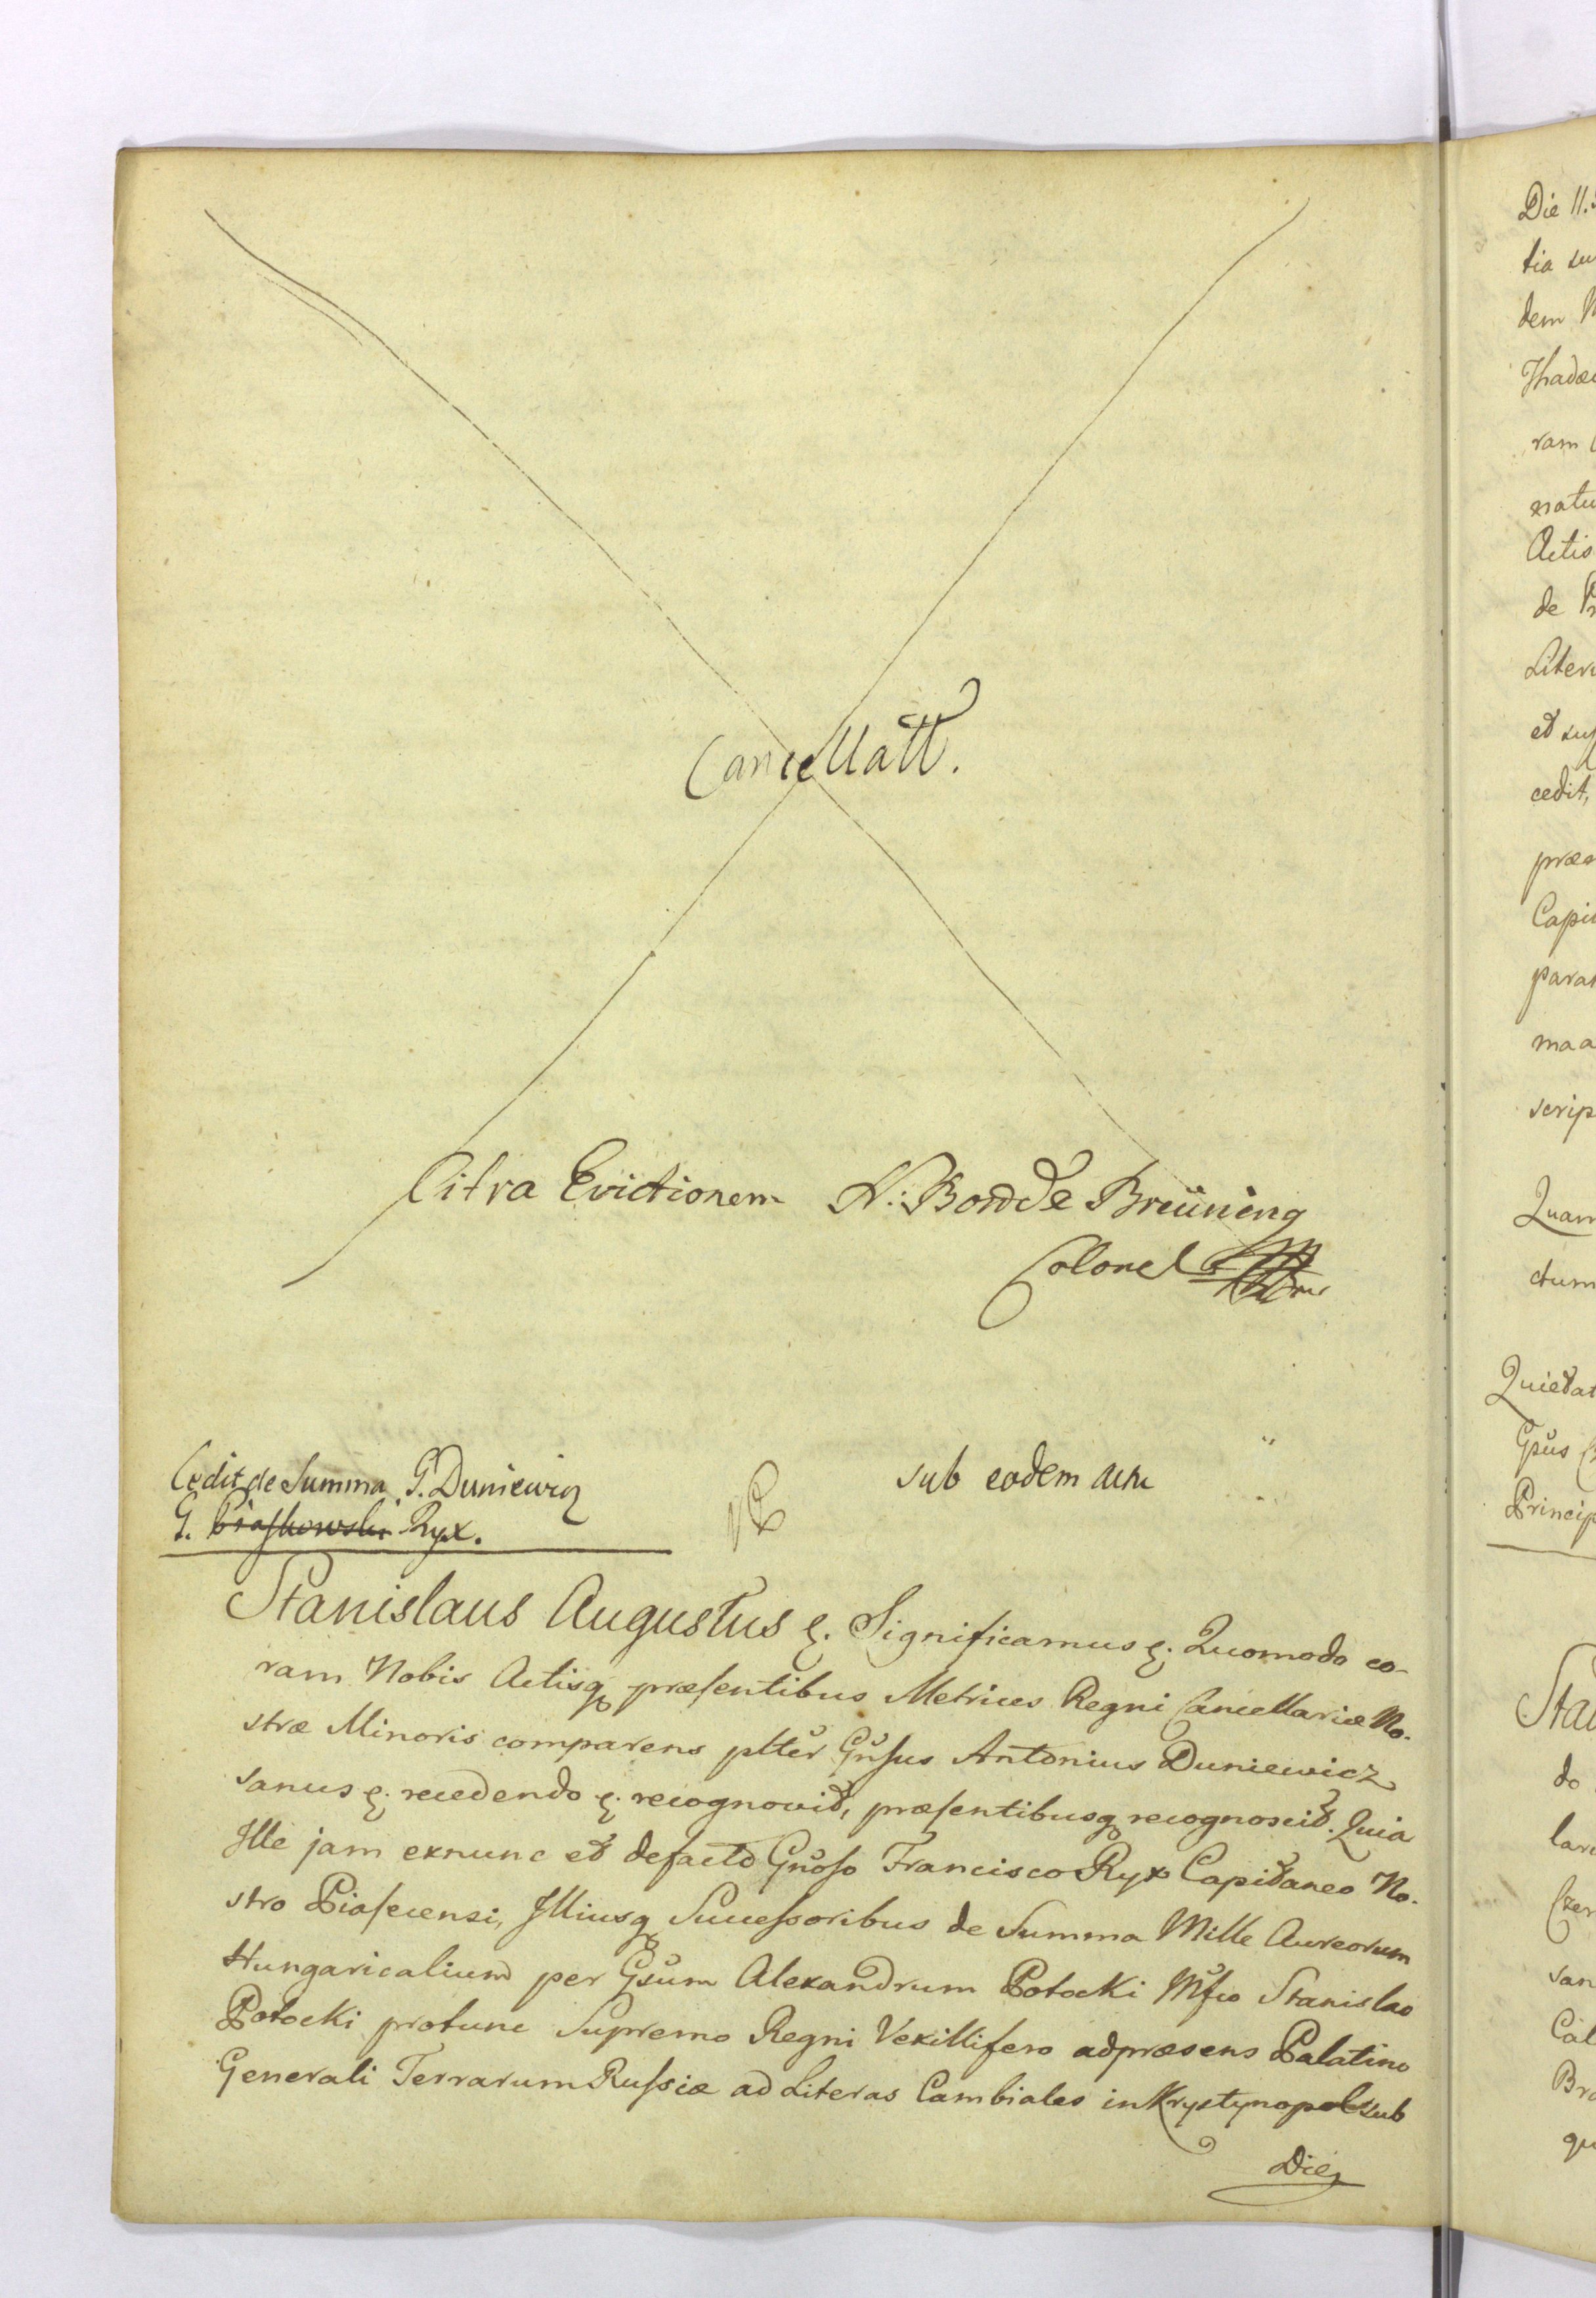 Cancellatt.
Citra Evictionem A: Bon de Breüning
Colonel
Cedit de Summa G. Duniewicz
G. Piaskowski Ryx.
sub eodem actu
Stanislaus Augustus &. Significamus &. Quomodo co-
ram Nobis Actisq præsentibus Metrices Regni Cancellariæ No-
stræ Minoris comparens plter Gnsus Antonius Duniewicz
sanus &. recedendo &. recognovit, præsentibusq recognoscit. Quia
Ille jam exnunc et defacto Gnoso Francisco Ryx Capitaneo No-
stro Piasecensi, Illiusq Successoribus de Summa Mille Aureorum
Hungaricalium per Gsum Alexandrum Potocki Mfco Stanislao
Potocki protunc Supremo Regni Vexillifero adpræsens Palatino
Generali Terrarum Russiæ ad Literas Cambiales in Krystynopol sub
Die
Die 11.
tia su
dem
Thadæ
ram
natu
Actis
de
Liter
et sup
cedit,
præs
Capi
parat
ma a
scrip
Quam
ctum
Quietat
Gsus
Princip
Sta
do
lar
Czer
san
Cal
Bra
qu